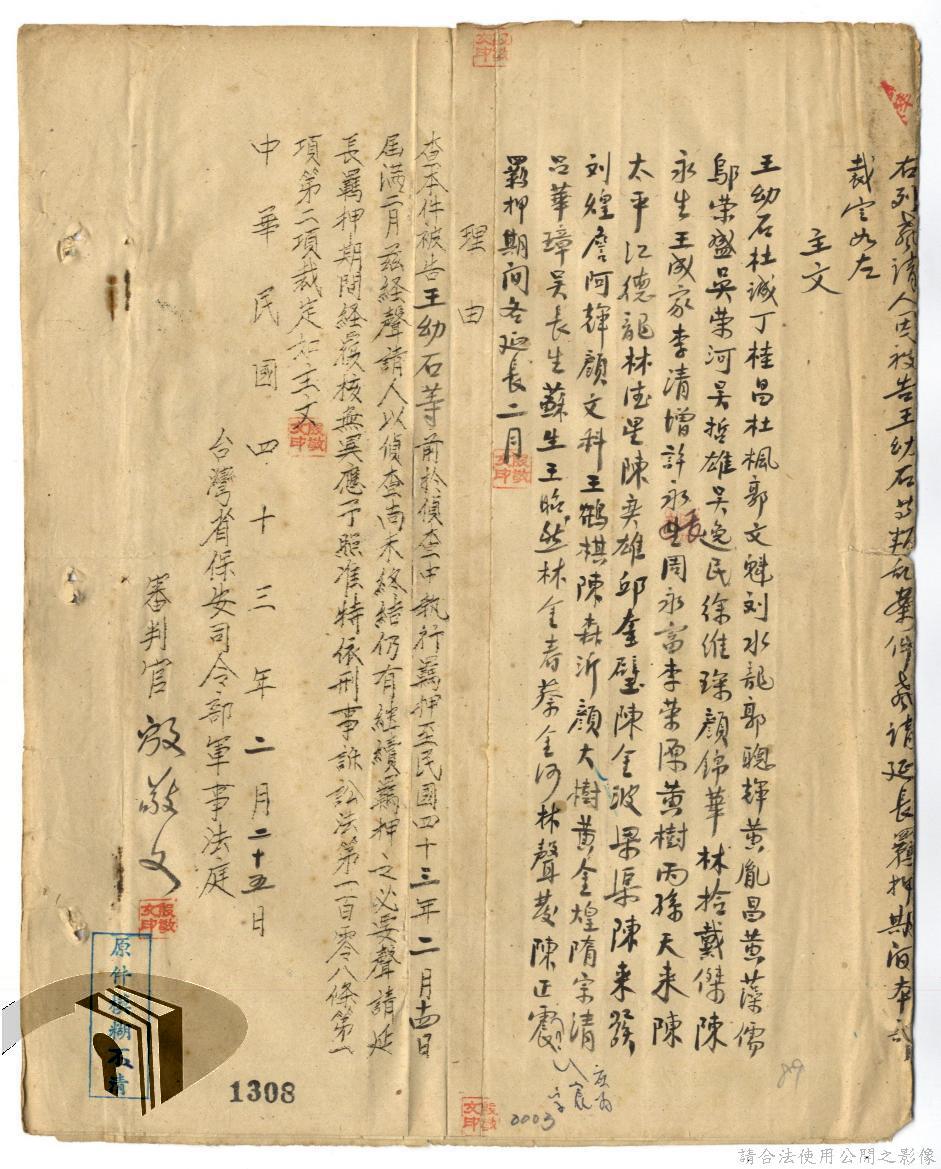 右列聲請人因被告王幼石等叛亂案件聲請延長羈押期間本部
裁定如左
主文
王幼石杜誠丁桂昌杜楓郭文魁刘水龍郭聰輝黄胤昌黄藻儒
鄔荣盛吳荣河吳哲雄吳逸民徐维琛顔锦華林拾戴傑陳
永生王成家李清增許永長周永富李荣源黄樹丙孫天来陳
太平江德龍林佳星陳奕雄邱奎璧陳金波梁渠陳来發
刘煌詹阿輝顔文科王鶴棋陳森沂顔大樹黄金煌隋宗清
吕華璋吴長生蘇生王昭然林金春蔡金河林聲發陳正宸
羈押期间各延長二月
理由
查本件被告王幼石等前於偵查中執行羈押至民國四十三年二月十四日
屆满二月兹経聲請人以偵查尚未終结仍有継續羈押之必要聲請延
長羈押期間経覆核無異應予照准特依刑事訴訟法第一百零八條第一
項第二項裁定如主文
中華民國四十三年二月二十五日
台灣省保安司令部軍事法庭
審判官殷敬文
殷敬文印
原件模糊不清
1308
0003
89
請合法使用公開之影像